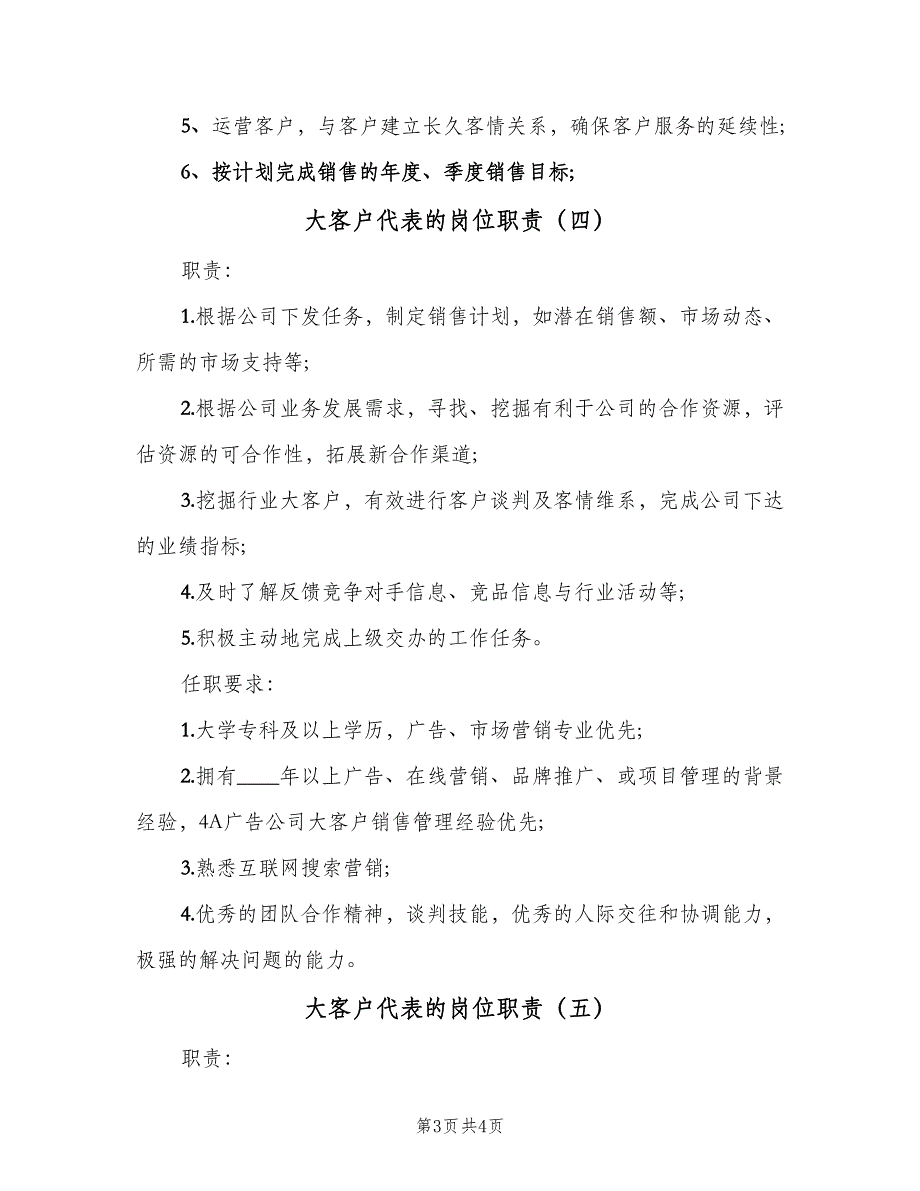 5、运营客户，与客户建立长久客情关系，确保客户服务的延续性;
6、按计划完成销售的年度、季度销售目标;
大客户代表的岗位职责（四）
职责：
1.根据公司下发任务，制定销售计划，如潜在销售额、市场动态、
所需的市场支持等;
2.根据公司业务发展需求，寻找、挖掘有利于公司的合作资源，评
估资源的可合作性，拓展新合作渠道;
3.挖掘行业大客户，有效进行客户谈判及客情维系，完成公司下达
的业绩指标;
4.及时了解反馈竞争对手信息、竞品信息与行业活动等;
5.积极主动地完成上级交办的工作任务。
任职要求：
1.大学专科及以上学历，广告、市场营销专业优先;
2.拥有____年以上广告、在线营销、品牌推广、或项目管理的背景
经验，4A广告公司大客户销售管理经验优先;
3.熟悉互联网搜索营销;
4.优秀的团队合作精神，谈判技能，优秀的人际交往和协调能力，
极强的解决问题的能力。
大客户代表的岗位职责（五）
职责：
第3页共4页